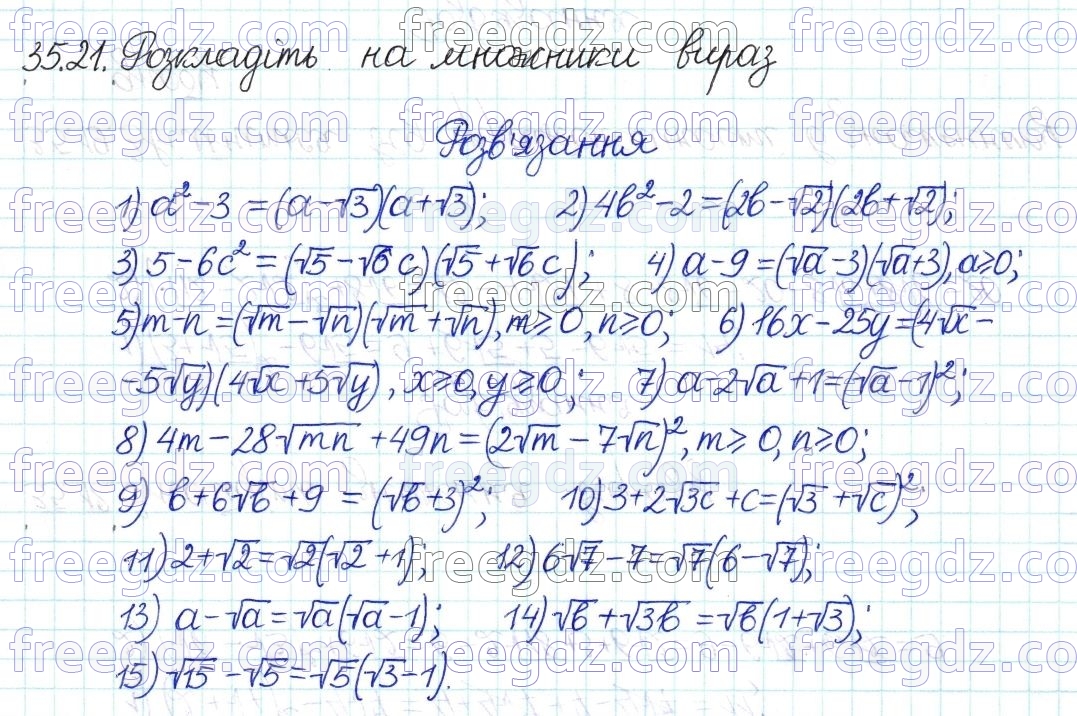 35.21. Розкладіть на множники вираз
Розв'язання
1) a² - 3 = (a - √3)(a + √3); 2) 4b² - 2 = (2b - √2)(2b + √2);
3) 5 - 6c² = (√5 - √6 c)(√5 + √6 c); 4) a - 9 = (√a - 3)(√a + 3), a ≥ 0;
5) m - n = (√m - √n)(√m + √n), m ≥ 0, n ≥ 0; 6) 16x - 25y = (4√x -
- 5√y)(4√x + 5√y), x ≥ 0, y ≥ 0; 7) a - 2√a + 1 = (√a - 1)²;
8) 4m - 28√mn + 49n = (2√m - 7√n)², m ≥ 0, n ≥ 0;
9) b + 6√b + 9 = (√b + 3)²; 10) 3 + 2√3c + c = (√3 + √c)²;
11) 2 + √2 = √2(√2 + 1); 12) 6√7 - 7 = √7(6 - √7);
13) a - √a = √a(√a - 1); 14) √b + √3b = √b(1 + √3);
15) √15 - √5 = √5(√3 - 1).
freegdz.com